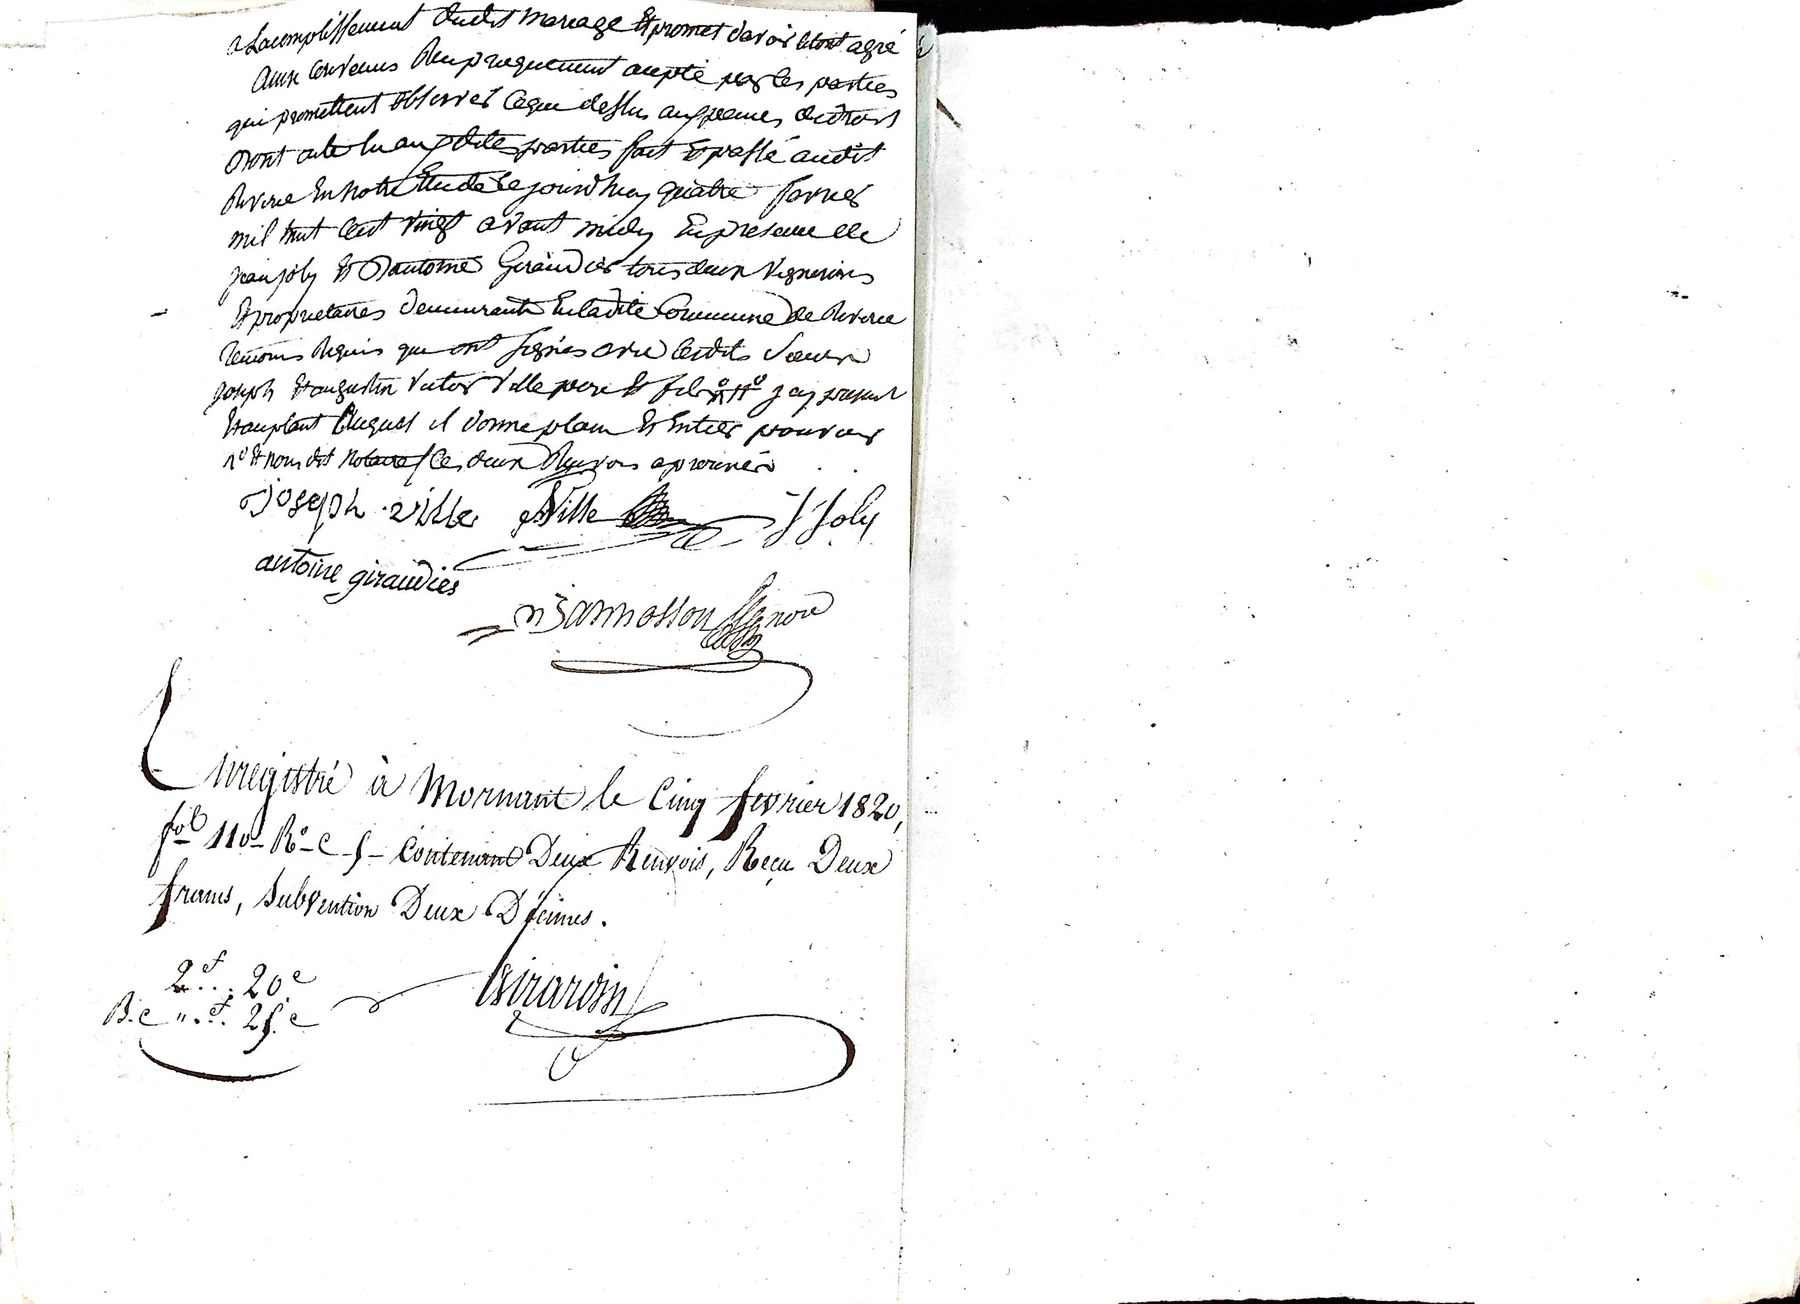 a Lacomplissement dudit mariage Et promet davoir letout agré
aux Convenus Reuproquement acepté par les parties
qui promettent observer Ceque dessus aux peines dedroit
Dont acte lu aux dites parties fait Et passé audit
Riverie En notre Etude Ce jourd'huy quatre fevrier
mil huit Cent vingt avant midy En presence de
jean joly Et D'antoine Giraudier tous deux Vignerons
Et propriétaires demeurants En ladite Commune de Riverie
temoins Requis qui ont signés avec lesdits Sieurs
joseph Et augustin victor ville pere Et fils
auquel il donne plain Et Entier pouvoir
Et nous dit Notaire / Ces deux Renvois aprouvés
joseph ville Ville J Joly
antoine giraudier
Enregistré à Mornant le Cinq fevrier 1820,
fol 110 Rº C 5 Contenant Deux Renvois, Reçu Deux
francs, Subvention Deux Décimes.
2f.. 20c
B.c "..f. 25.c
Girardin